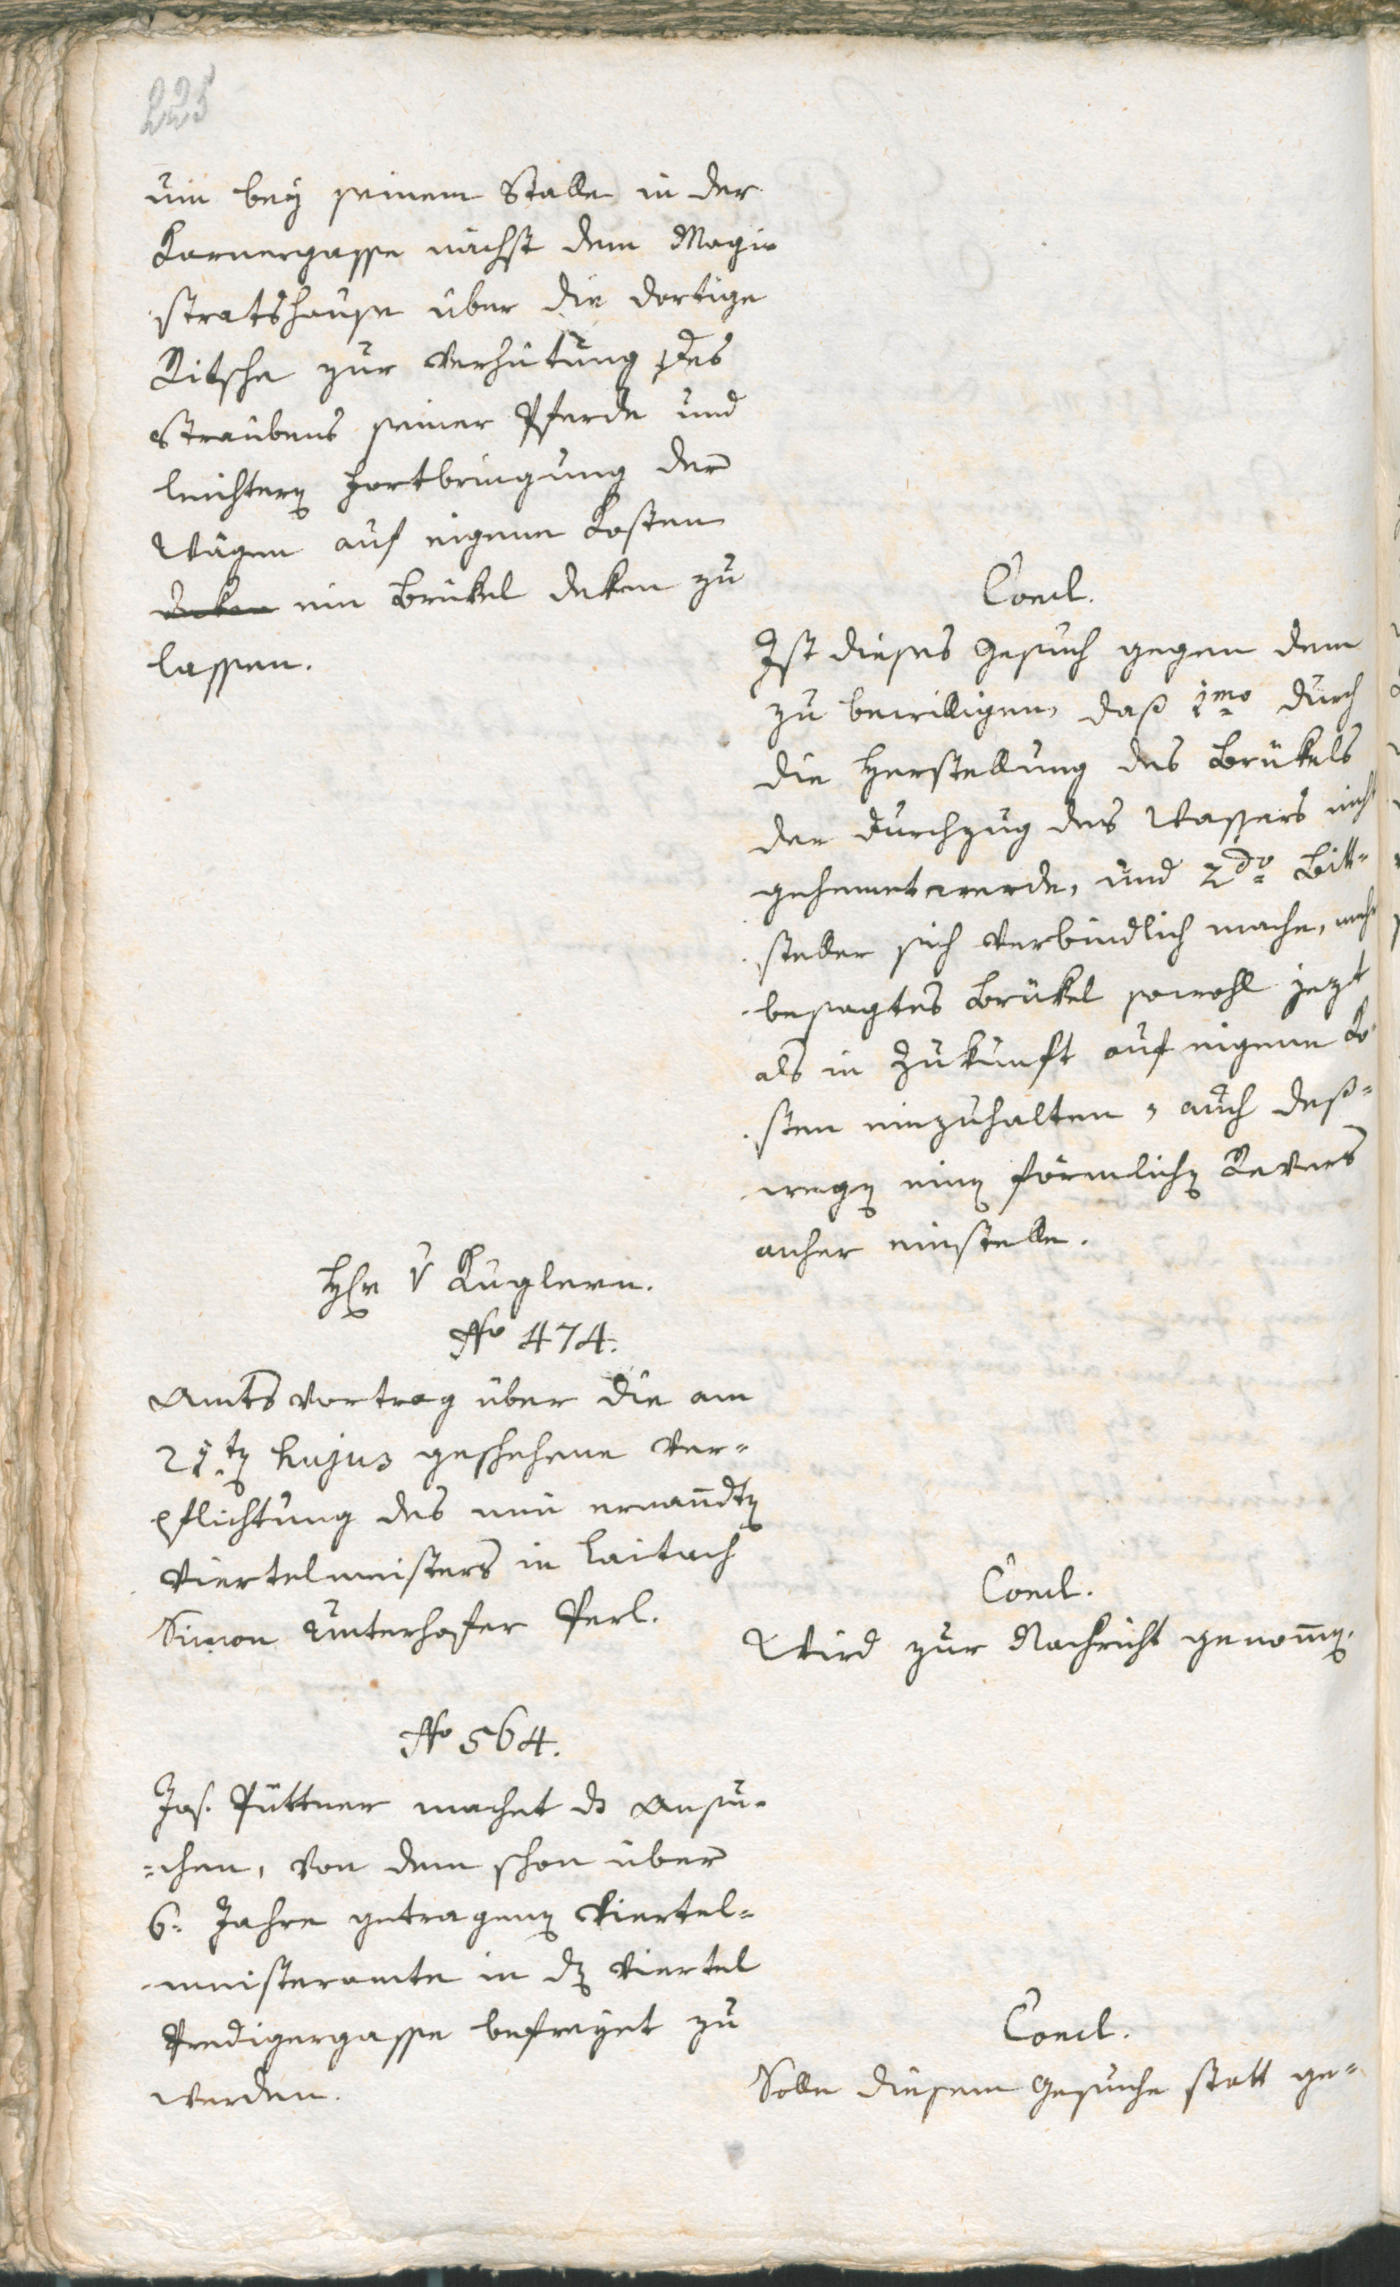 225
um bey seinem Stalle in der
Karnergasse nächst dem Magi-
stratshause über die dortige
Ritsche zur Verhütung des
Straubens seiner Pferde und
leichtern Fortbringung der
Wägen auf eigene Kosten
ein Brükel deken zu
lassen.
Concl.
Ist dieses Gesuch gegen dem
zu bewilligen, daß 1mo durch
die Herstellung des Brükels
der Durchzug des Wassers nicht
gehemet werde, und 2do Bitt-
steller sich verbindlich mache, mehr
besagtes Brükel sowohl jezt
als in Zukunft auf eigene Ko-
sten einzuhalten, auch deß-
wegen einen förmlichen Revers
anher einstelle.
Hr v Kuglern.
No 474.
Amtsvortrag über die am
21ten hujus geschehene Ver-
pflichtung des neu ernandten
Viertelmeisters in Laitach
Simon Unterhofer Perl.
Concl.
Wird zur Nachricht genommen.
No 564.
Jos. Püttner machet ds Ansu-
chen, von dem schon über
6. Jahre getragenen Viertel-
meisteramte in der Viertel
Predigergasse befreyet zu
werden.
Concl.
Solle diesem Gesuche statt ge-